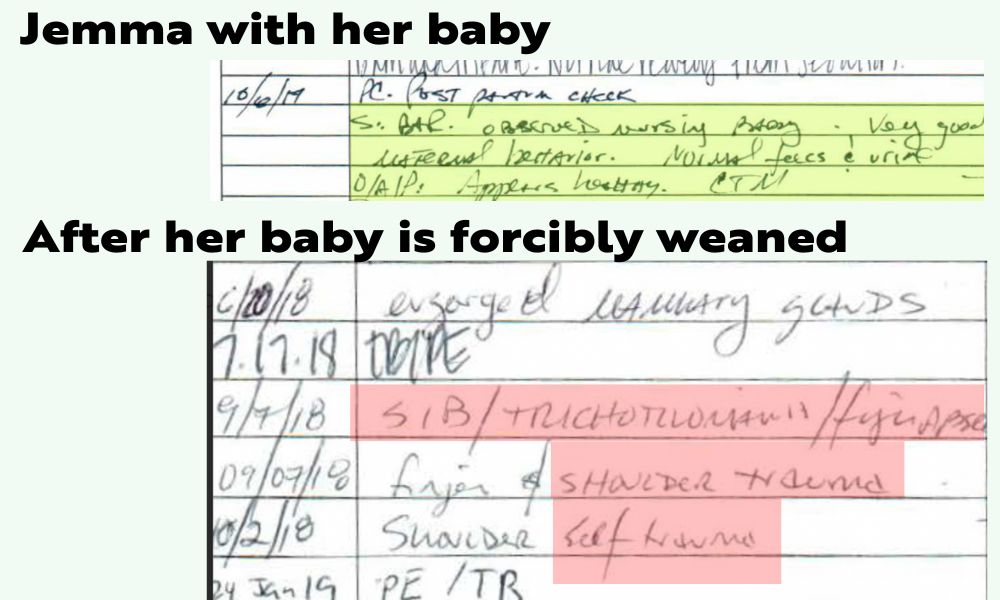 Jemma with her baby
from
10/6/17 PC. POST PARTUM CHECK
S: BAR. OBSERVED nursing BABY. Very good
MATERNAL behavior. NORMAL feces c̄ urine
O/A/P: Appears healthy. CTM
After her baby is forcibly weaned
6/20/18 engorged MAMMARY GLANDS
7.17.18 TB/PE
9/7/18 SIB/TRICHOTILLOMANIA/finger
09/07/18 finger & SHOULDER trauma
10/2/18 SHOULDER Self trauma
24 Jan 19 PE/TR